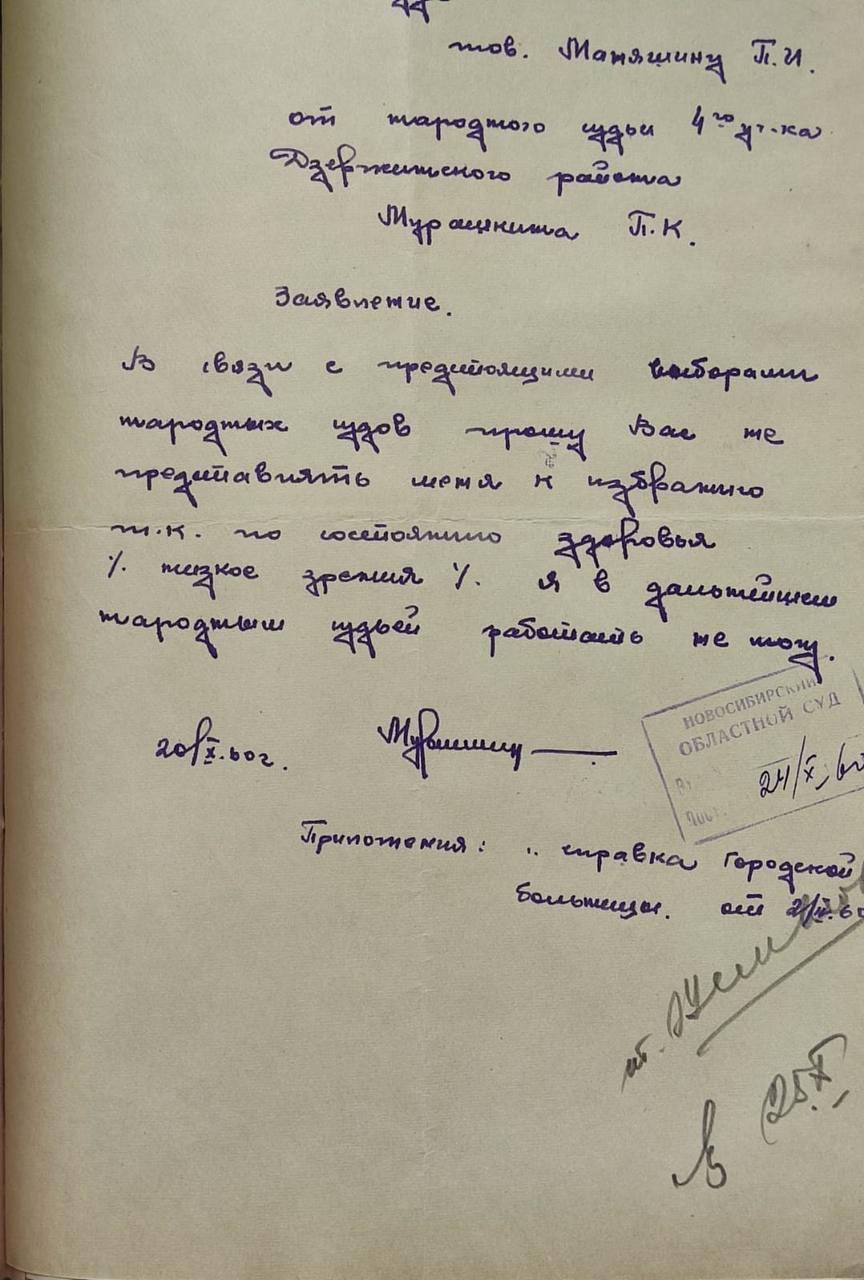 тов. Маняшину П.И.
от народного судьи 4го уч-ка
Дзержинского района
Мурашкина П.К.
Заявление.
В связи с предстоящими выборами
народных судов прошу Вас не
представлять меня к избранию
т.к. по состоянию здоровья
/. низкое зрения /. я в дальнейшем
народным судьей работать не могу.
20/X.60г.
НОВОСИБИРСКИЙ
ОБЛАСТНОЙ СУД
24/X
Приложения: справка Городской
больницы. от
25.X